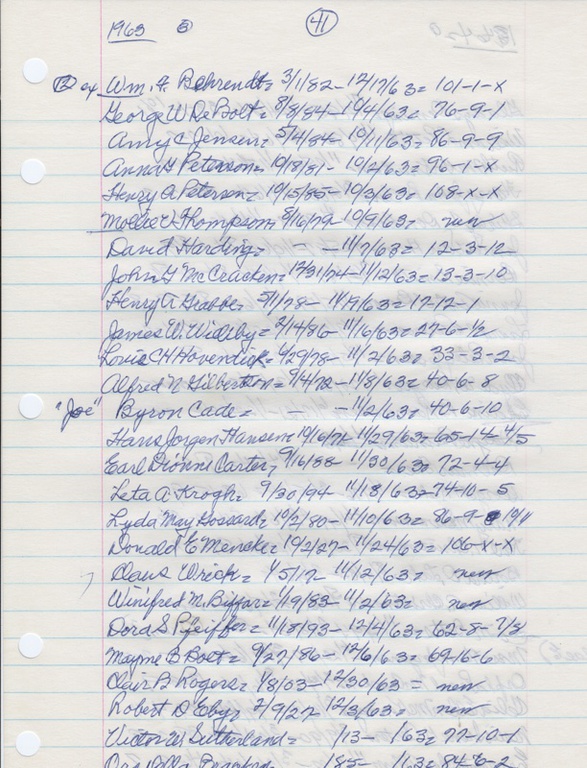 1963 41
ex Wm. F. Behrendt = 3/1/82 - 12/17/63 = 101-1-X
George W DeBolt = 8/8/84 - 10/4/63 = 76-9-1
Amy C Jensen = 5/4/84 - 10/11/63 = 86-9-9
Anna Peterson = 10/18/81 - 10/2/63 = 96-1-X
Henry A Petersen = 10/15/85 - 10/3/63 = 108-X-X
Mollie V Thompson, 8/16/79 - 10/9/63 = new
David Harding = - - 11/7/63 = 12-3-12
John McCracken = 12/31/74 - 11/12/63 = 13-3-10
Henry A Grabbe 5/1/78 - 11/9/63 = 17-12-1
James W. = 2/14/86 - 11/6/63 = 27-6-1/2
Louis CH = 4/29/78 - 11/2/63 = 33-3-2
Alfred N Gilbertson = 9/4/72 - 11/8/63 = 40-6-8
"Joe" Byron Cade = - - 11/2/63 = 40-6-10
Hans Jorgen Hansen = 10/16/71 - 11/29/63 = 65-14-4/5
Earl Carter, 9/16/88 - 11/30/63 = 72-4-4
Leta A. Krogh = 9/30/94 - 11/18/63 = 74-10-5
Lyda May = 10/2/80 - 11/10/63 = 86-9- 10/11
Donald E Mencke = 10/2/27 - 11/24/63 = 106-X-X
Claus Wrich = 1/5/17 - 11/12/63 = new
Winifred M. = 1/19/83 - 11/2/63 = new
Dora S Pfeiffer = 11/18/93 - 12/4/63 = 62-8-7/8
Mayme B Bolt = 9/27/86 - 12/6/63 = 69-16-6
B Rogers = 1/8/03 - 12/30/63 = new
Robert D Eby, 2/9/27 - 12/3/63 = new
Victor W Sutherland = /13 - /63 = 77-10-1
185- 1163 = 84-6-2